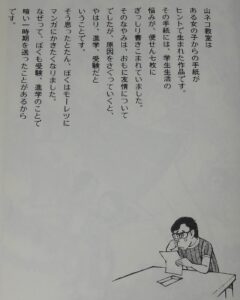 山ネコ教室は
ある女の子からの手紙が
ヒントで生まれた作品です。
その手紙には、学生生活の
悩みが、便せん七枚に
ぎっしり書きこまれていました。
そのなやみは、おもに友情について
でしたが、原因をさぐっていくと、
やはり、進学、受験だと
いうことです。
そう思ったとたん、ぼくはモーレツに
マンガにかきたくなりました。
なぜって、ぼくも受験、進学のことで
暗い一時期を送ったことがあるから
です。